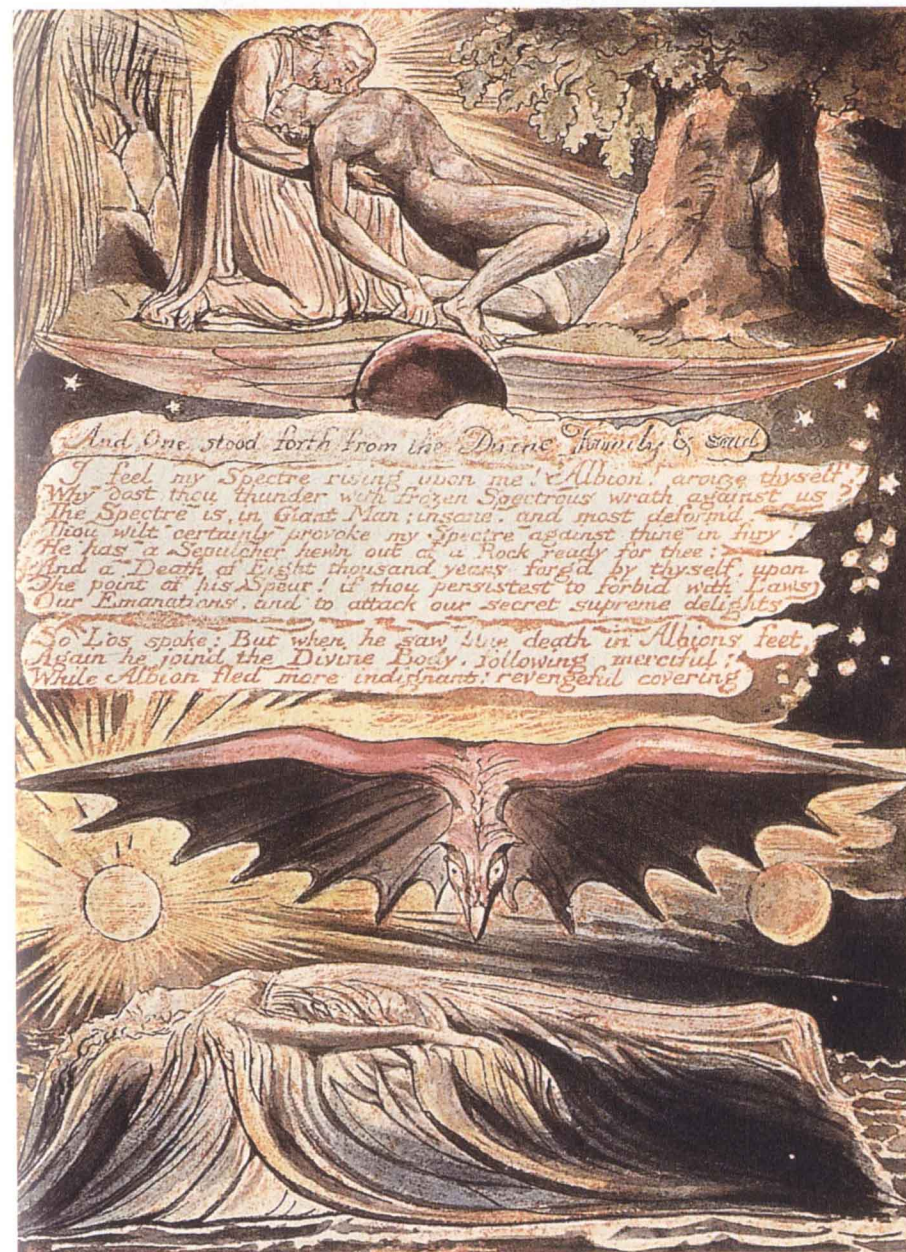 And One stood forth from the Divine Family & said
I feel my Spectre rising upon me! Albion! arouze thyself!
Why dost thou thunder with frozen Spectrous wrath against us?
The Spectre is, in Giant Man; insane, and most deform'd
Thou wilt certainly provoke my Spectre against thine in fury!
He has a Sepulcher hewn out of a Rock ready for thee:
And a Death of Eight thousand years forg'd by thyself, upon
The point of his Spear! if thou persistest to forbid with Laws
Our Emanations, and to attack our secret supreme delights
So Los spoke: But when he saw blue death in Albions feet,
Again he join'd the Divine Body, following merciful;
While Albion fled more indignant: revengeful covering